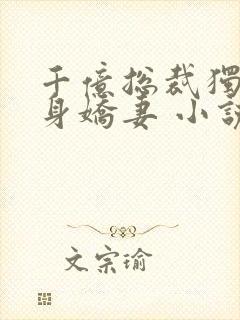 千億總裁獨
身嬌妻 小說
文宗瑜